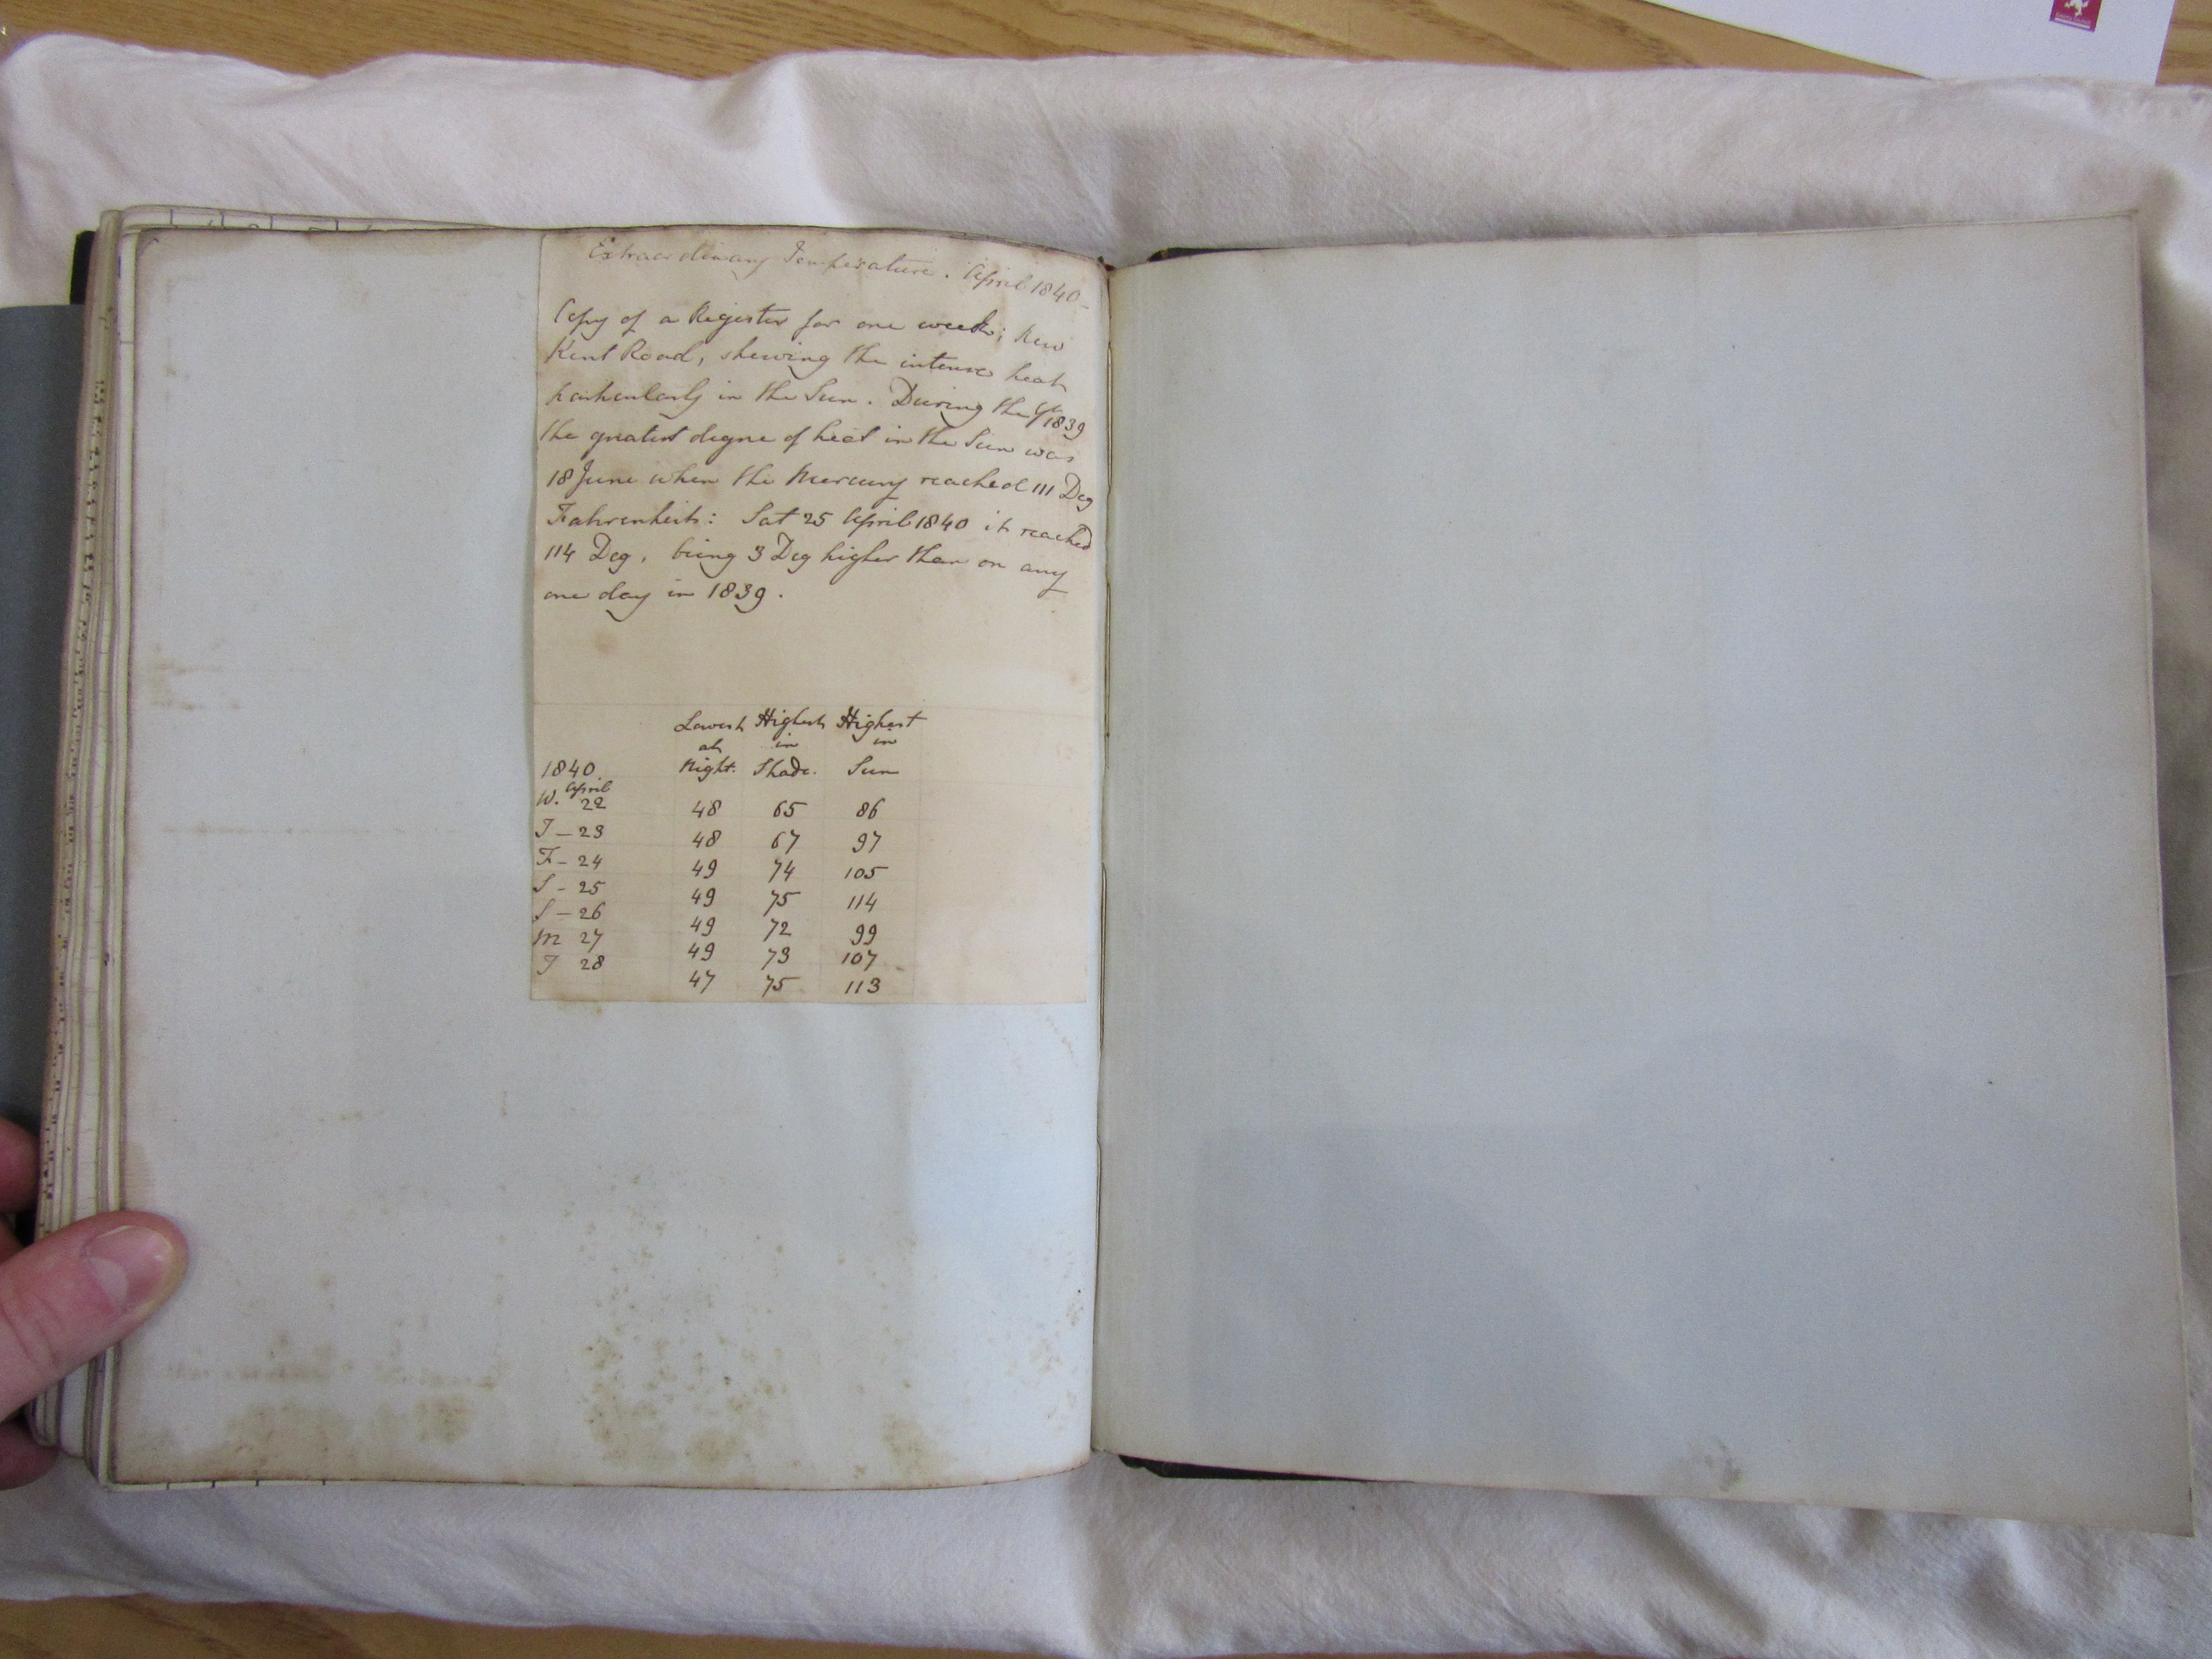 Extraordinary Temperature. April 1840 -
Copy of a Register for one week; New
Kent Road, shewing the intense heat
particularly in the Sun. During the Yr 1839
the greatest degree of heat in the Sun was
18 June when the Mercury reached 111 Deg
Fahrenheit: Sat 25 April 1840 it reached
114 Deg, being 3 Deg higher than on any
one day in 1839.
Lowest Highest Highest
at in in
1840. Night. Shade. Sun
April
W. 22 48 65 86
T - 23 48 67 97
F - 24 49 74 105
S - 25 49 75 114
S - 26 49 72 99
M 27 49 73 107
T 28 47 75 113